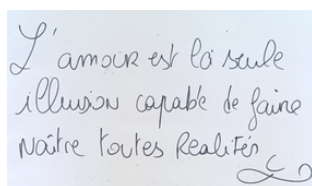 L'amour est la seule
illusion capable de faire
naître toutes Realités